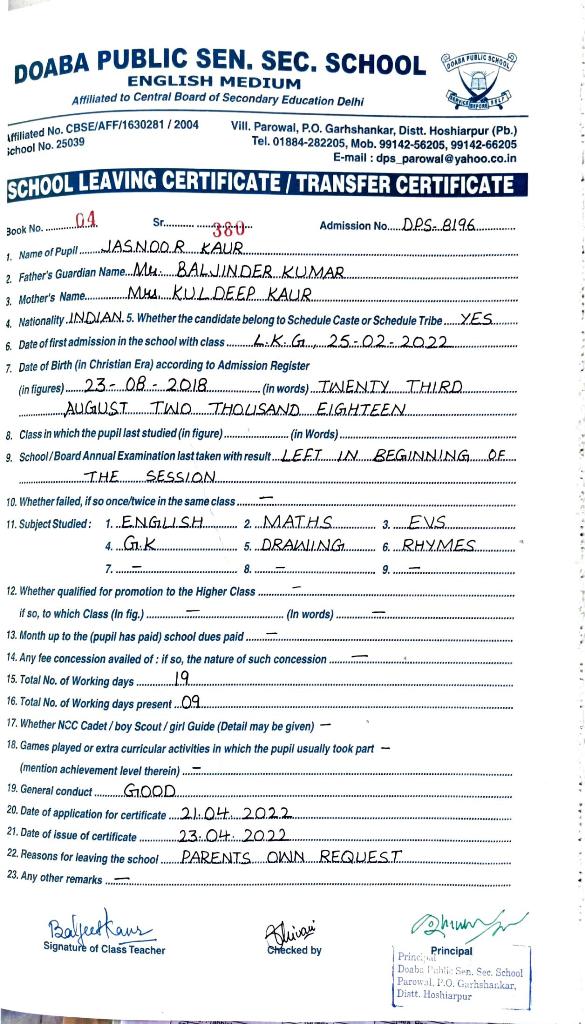 DOABA PUBLIC SEN. SEC. SCHOOL
ENGLISH MEDIUM
Affiliated to Central Board of Secondary Education Delhi
DOABA PUBLIC SCHOOL
SERVICE BEFORE SELF
Affiliated No. CBSE/AFF/1630281 / 2004
School No. 25039
Vill. Parowal, P.O. Garhshankar, Distt. Hoshiarpur (Pb.)
Tel. 01884-282205, Mob. 99142-56205, 99142-66205
E-mail : dps_parowal@yahoo.co.in
SCHOOL LEAVING CERTIFICATE / TRANSFER CERTIFICATE
Book No. 04 Sr. 380 Admission No. DPS-8196
1. Name of Pupil JASNOOR KAUR
2. Father's Guardian Name Mr. BALJINDER KUMAR
3. Mother's Name Mrs KULDEEP KAUR
4. Nationality INDIAN 5. Whether the candidate belong to Schedule Caste or Schedule Tribe YES
6. Date of first admission in the school with class L.K.G, 25-02-2022
7. Date of Birth (in Christian Era) according to Admission Register
(in figures) 23-08-2018 (in words) TWENTY THIRD
AUGUST TWO THOUSAND EIGHTEEN
8. Class in which the pupil last studied (in figure) (in Words)
9. School / Board Annual Examination last taken with result LEFT IN BEGINNING OF
THE SESSION
10. Whether failed, if so once/twice in the same class –
11. Subject Studied : 1. ENGLISH 2. MATHS 3. EVS
4. G.K 5. DRAWING 6. RHYMES
7. – 8. – 9. –
12. Whether qualified for promotion to the Higher Class –
if so, to which Class (In fig.) – (In words) –
13. Month up to the (pupil has paid) school dues paid –
14. Any fee concession availed of : if so, the nature of such concession –
15. Total No. of Working days 19
16. Total No. of Working days present 09
17. Whether NCC Cadet / boy Scout / girl Guide (Detail may be given) –
18. Games played or extra curricular activities in which the pupil usually took part –
(mention achievement level therein) –
19. General conduct GOOD
20. Date of application for certificate 21.04.2022
21. Date of issue of certificate 23.04.2022
22. Reasons for leaving the school PARENTS OWN REQUEST
23. Any other remarks –
Baljeet Kaur
Signature of Class Teacher
Shivani
Checked by
Principal
Principal
Doaba Public Sen. Sec. School
Parowal, P.O. Garhshankar,
Distt. Hoshiarpur